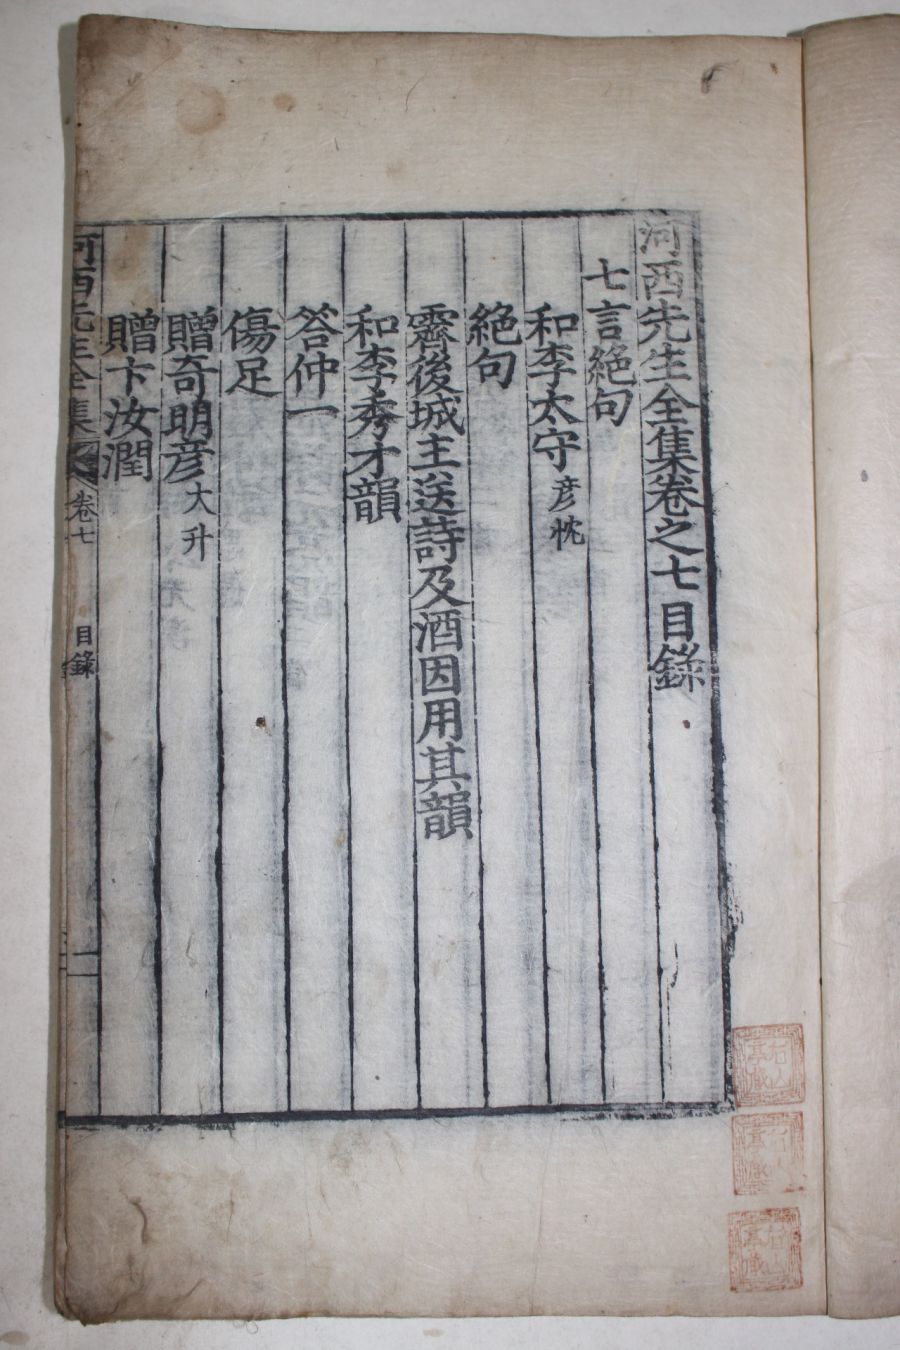 河西先生全集卷之七目錄
七言絶句
和李太守彦忱
絶句
霽後城主送詩及酒因用其韻
和李秀才韻
答仲一
傷足
贈奇明彦大升
贈卞汝潤
河西先生全集 卷七 目錄 一